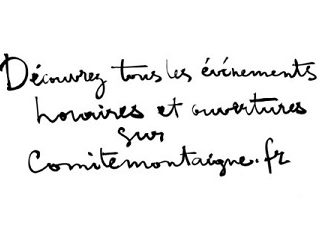 Découvrez tous les événements
horaires et ouvertures
sur
Comitemontaigne.fr